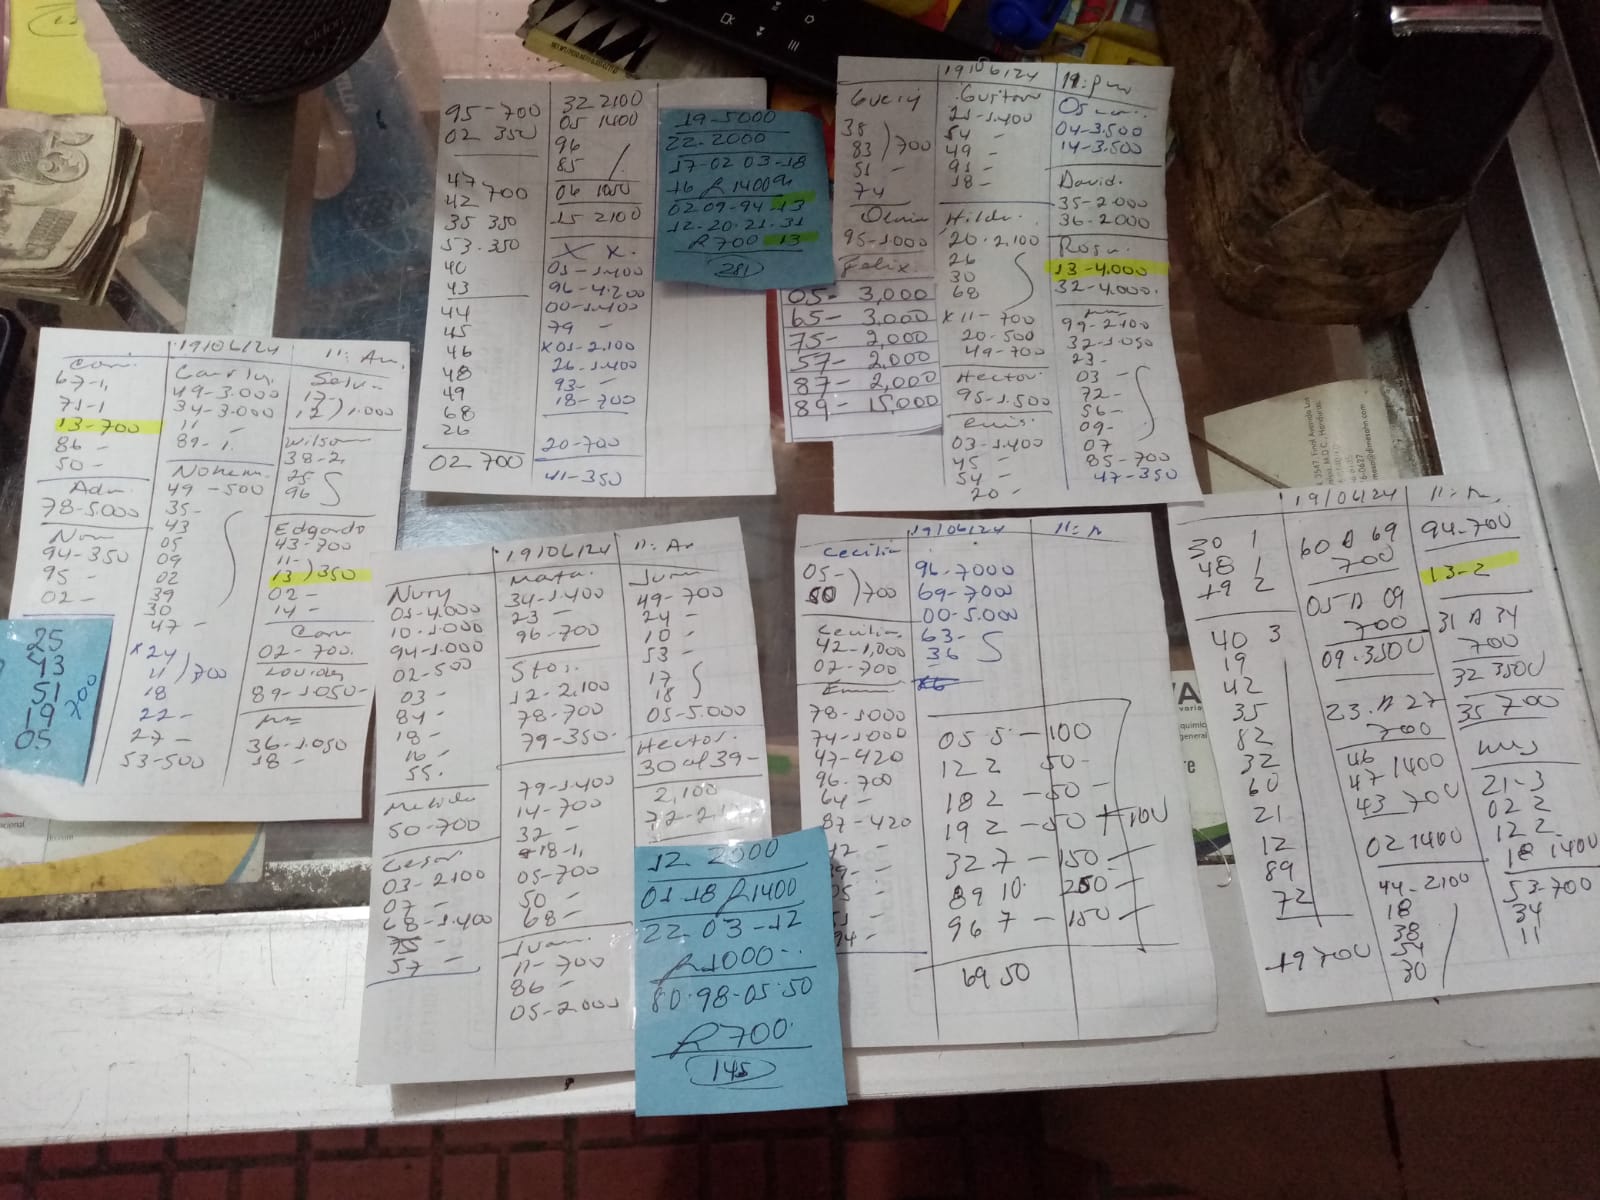 19/06/24
11: Am
67-1,
71-1
13-700
86 -
50 -
Adn.
78-5000
94-350
95 -
02 -
25
43
51
19
05
Carlin
49-3.000
34-3.000
11 -
89-1.
Nohemi
49-500
35-
43
05
09
02
39
30
47 -
x 24
11 )700
18
22-
27 -
53-500
Selvin
17-
12 )1.000
Wilson
38-2,
25
96
Edgardo
43-700
11-
13 )350
02 -
14 -
02-700.
Lourdes
89-1.050-
36-1.050
18 -
95-700
02 350
47
42 700
35 350
53.350
40
43
44
45
46
48
49
68
26
02 700
32 2100
05 1400
96
85
06 1050
15 2100
X X.
01-1.400
96-4.200
00-1.400
79 -
x01-2.100
26-1.400
93- -
18-700
20-700
41-350
19-5000
22-2000
17-02 03-18
16 R 1400
02 09-94-13
12-20-21-31
R700 13
281
19/06/24
11: Pm
38
83 )700
51 -
74
95-1000
Felix.
05- 3,000
65- 3,000
75- 2,000
57- 2,000
87- 2,000
89- 15,000
Gustavo
21-1.400
54 -
49 -
91 -
18-
Hilda.
20-2.100
26
30
68
x 11-700
20-500
49-700
Hector.
95-1.500
03-1.400
45 -
54 -
20 -
04-3.500
14-3.500
David.
35-2.000
36-2.000
Rosa.
13-4.000
32-4.000.
99-2.100
32-1.050
23-
03 -
72-
56-
09-
07
85-700
47-350
19/06/24
11: Am
Nury
01-4.000
10-1.000
94-1.000
02-500
03 -
84 -
18 -
16 -
55.
50-700
Cesar
03-2100
07 -
68-1.400
75 -
57 -
34-1.400
23 -
96-700
12-2.100
78-700
79-350.
79-1.400
14-700
32 -
18-1,
05-700
50 -
68-
Juan.
11-700
86 -
05-2.000
Juan
49-700
24 -
10 -
53 -
17
18
05-5.000
Hector.
30 al 39-
2,100
12 2500
01-18 R1400
22-03-12
R1000-.
80-98-05-50
R700.
145
19/06/24
Cecilia
05-
50 )700
Cecilia
42-1,000
02-700
78-1000
74-1000
47-420
96-700
64-
87-420
96-7000
69-7000
00-5.000
63-
36
05 5 - 100
12 2 50-
18 2 - 50 -
19 2 - 50
32 7 - 150 -
89 10. 250 -
96 7 - 150 -
6950
19/06/24
30 1
48 1
19 2
40 3
19
42
35
82
32
60
21
12
89
72
19 700
60 A 69
700
05 A 09
700
09-3500
23. A 27
700
46
47 1400
43 700
02 1400
44-2100
18
38
54
30
94-700
13-2
31 A 34
700
32 3500
35 700
21-3
02 2
12 2
18 1400
53-700
34
11